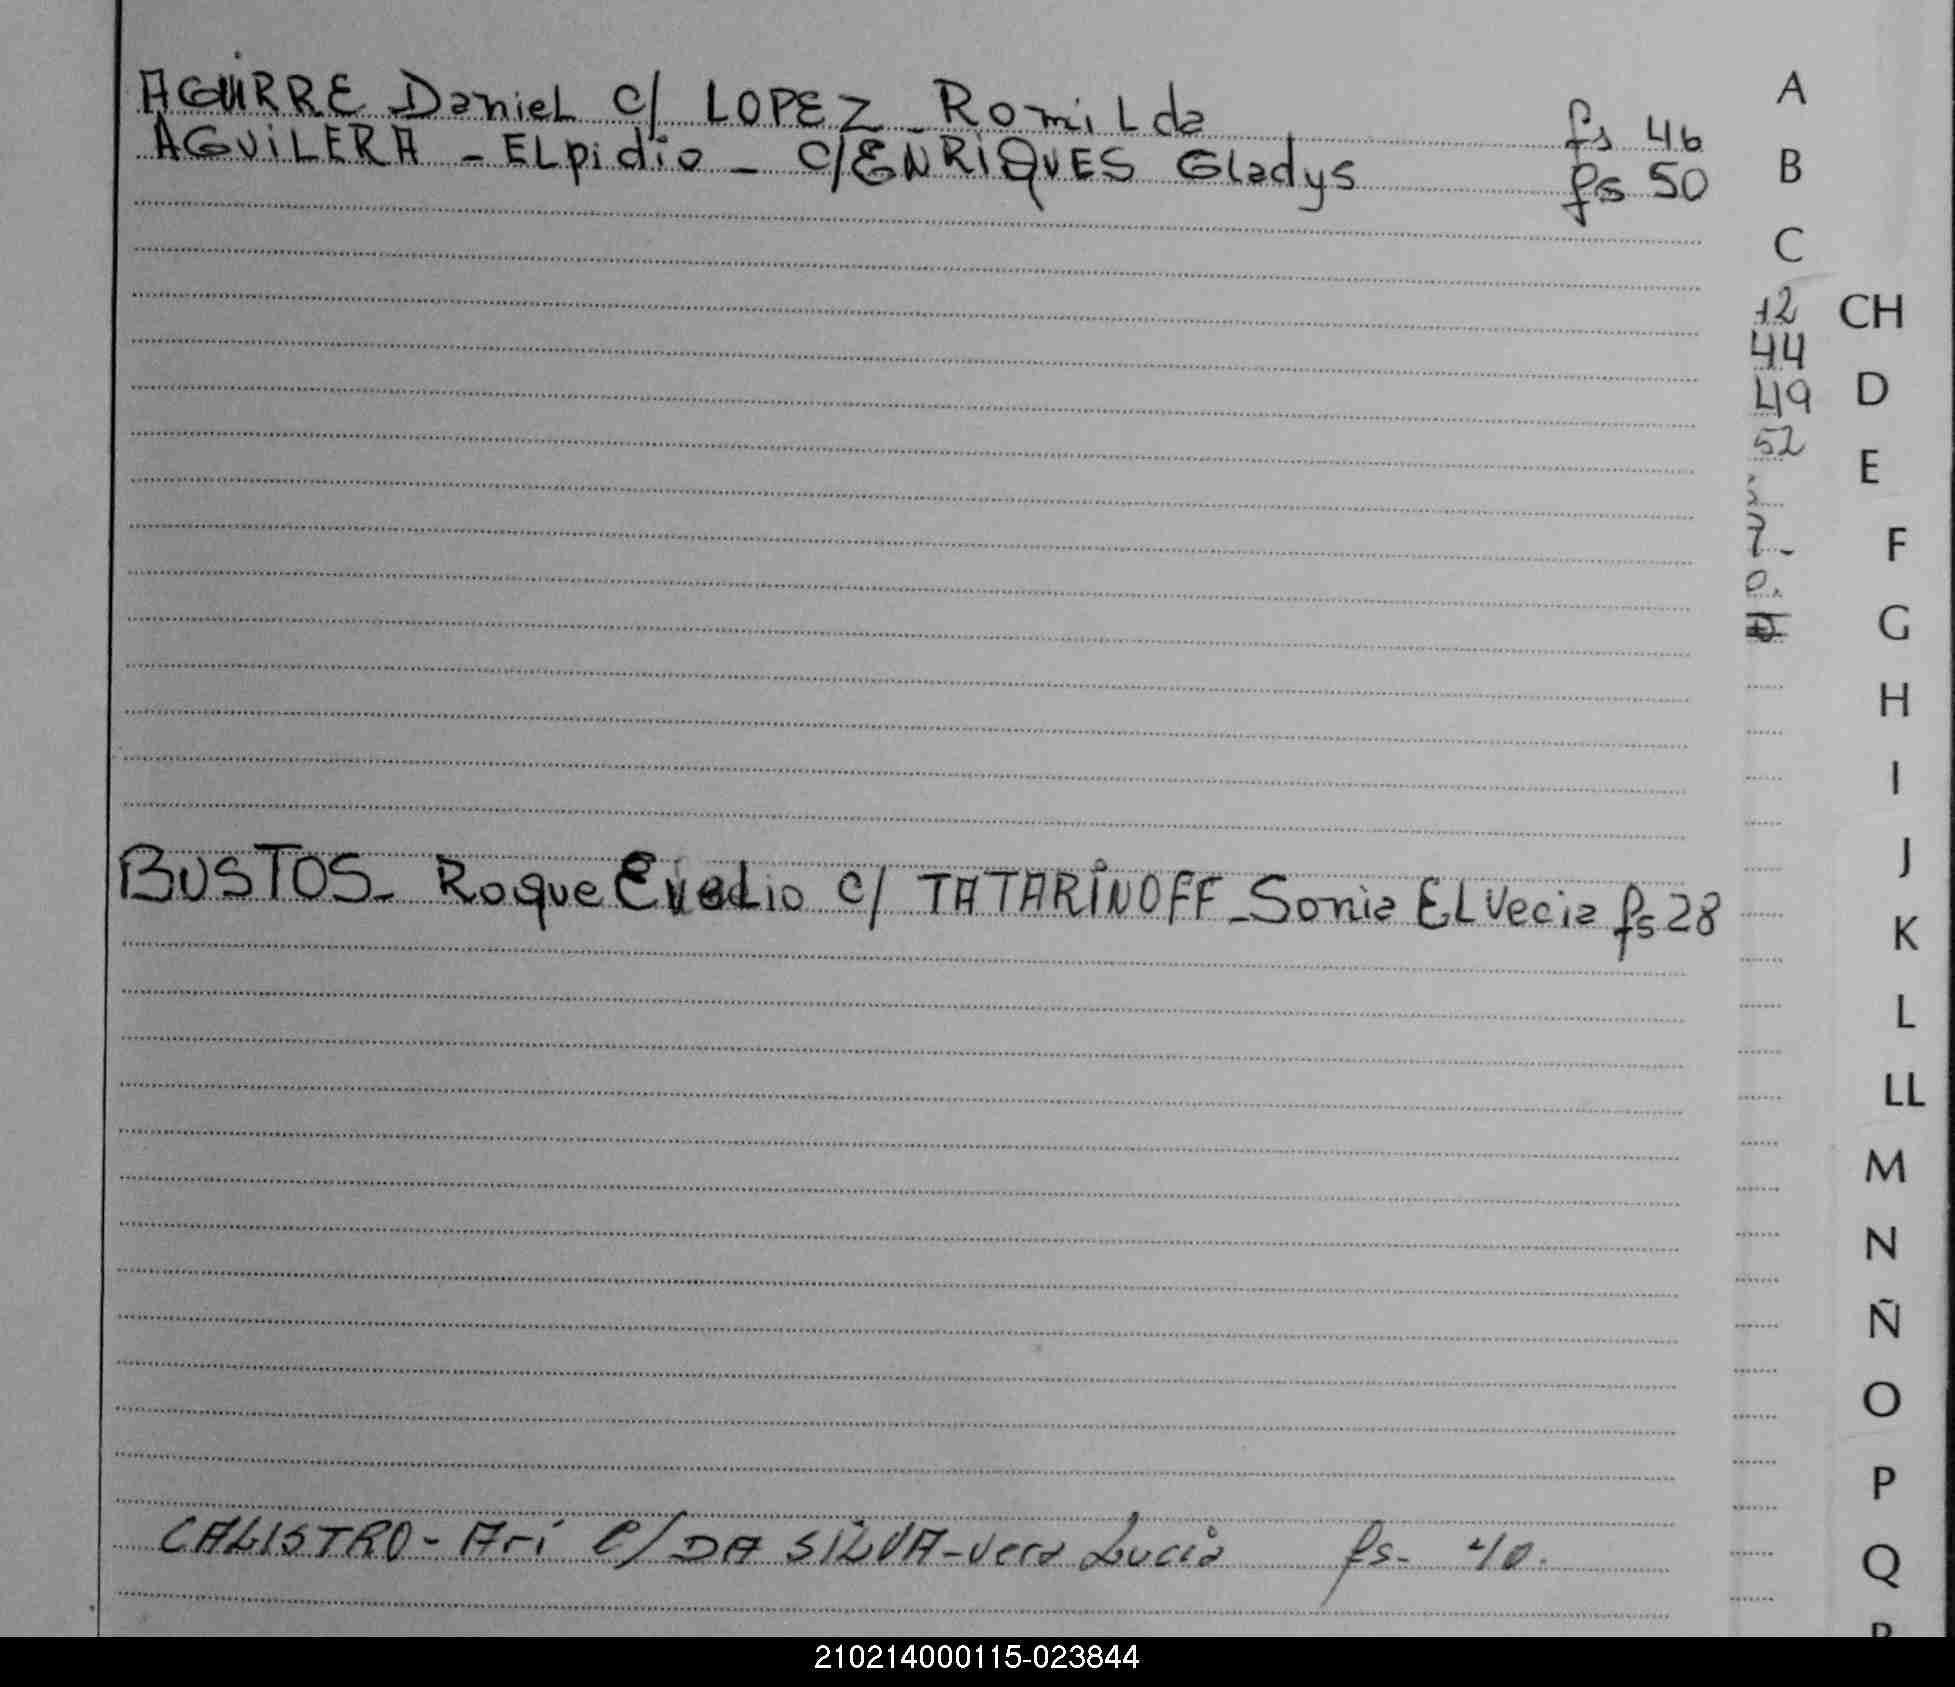 AGUIRRE Daniel c/ LOPEZ - Romilda fs 46
AGUILERA - ELpidio - c/ ENRIQUES Gladys fs 50
BUSTOS - Roque c/ TATARINOFF - Sonia ELvecia fs 28
CALISTRO - Ari c/ DA SILVA - Vera Lucia fs - 40.
A
B
C
12
44
49
52
7 -
0.
CH
D
E
F
G
H
I
J
K
L
LL
M
N
Ñ
O
P
Q
210214000115-023844